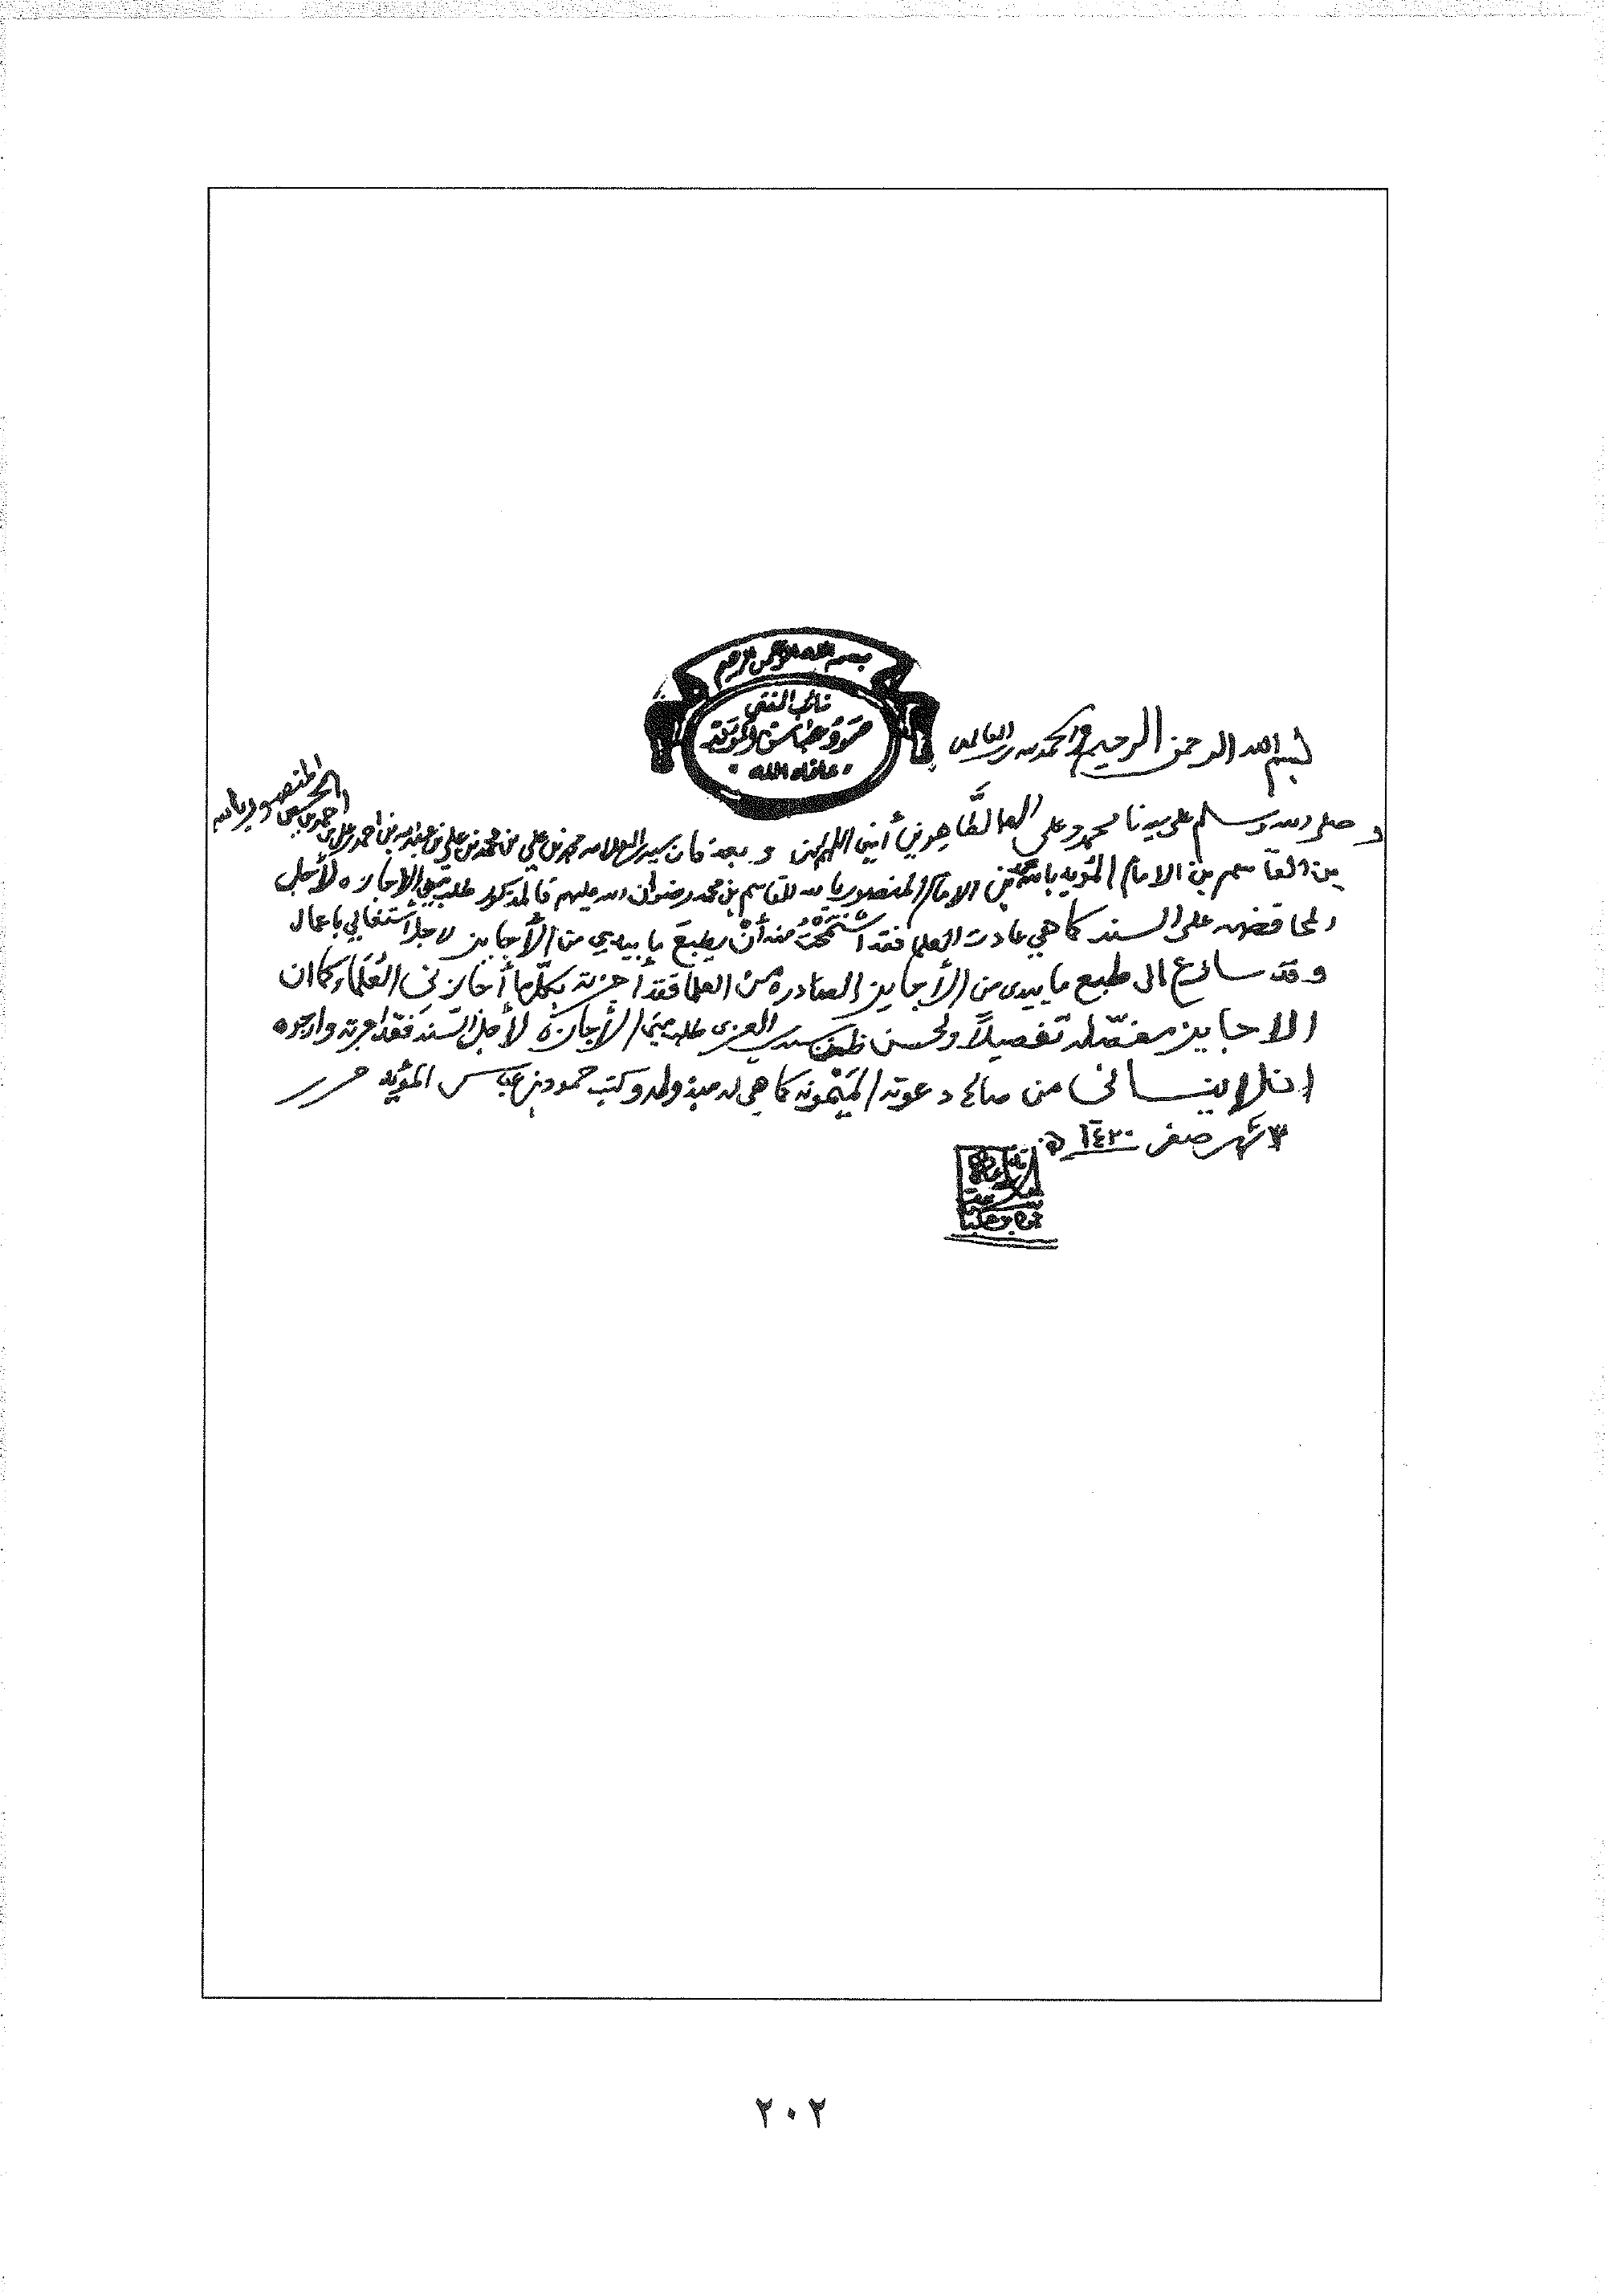 بسم الله الرحمن الرحيم
نائب المفتي
حمود عباس المؤيد
عافاه الله
بسم الله الرحمن الرحيم والحمد لله رب العالمين
وصلى الله وسلم على سيدنا محمد وعلى اله الطَّاهرين أمين اللهم امين وبعد فان سيدي العلامه محمد بن علي بن محمد بن علي بن عبدالله بن احمد بن علي بن
احمد بن الحسين المنصور بالله
بن القاسم بن الامام المؤيد بالله محمد بن الامام المنصور بالله القاسم بن محمد رضوان الله عليهم فالمذكور طلب مني الإجازه لأجل
المحافظه على السند كما هي عادت العلما فقد منه أن يطبع ما بيدي من الأجايز لاجل اشتغالي باعمال
وقد سارع الى طبع ما بيدي من الأجايز الصادره من العلما فقد اجزته بكلّما أجازني العُلَماء كما ان
الاجايز مفصّله تفصيلاً ولحسن ظن سيدي العزي طلب مني الأجازة لأجل السند فقد اجزته وارجوه
ان لا ينساني من صالح دعوته الميْمونه كما هي له مبذوله وكتب حمود بن عباس المؤيد حرر
٣ شهر صفر ١٤٢٠ هـ
٢٠٢